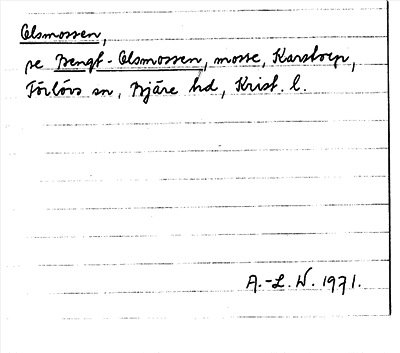 Olsmossen,
se Bengt-Olsmossen, mosse, Karstorp,
Förlövs sn, Bjäre hd, Krist. l.
A.-L. W. 1971.